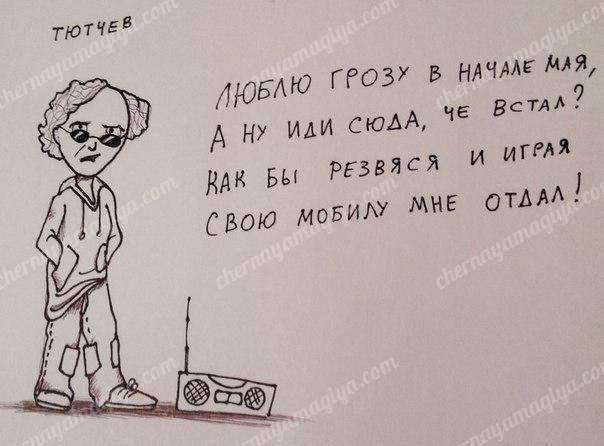 ТЮТЧЕВ
ЛЮБЛЮ ГРОЗУ В НАЧАЛЕ МАЯ,
А НУ ИДИ СЮДА, ЧЕ ВСТАЛ?
КАК БЫ РЕЗВЯСЯ И ИГРАЯ
СВОЮ МОБИЛУ МНЕ ОТДАЛ!
chernayamagiya.com
chernayamagiya.com
chernayamagiya.com
chernayamagiya.com
chernayamagiya.com